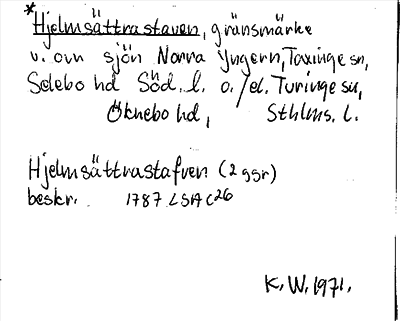 *Hjelmsättrastaven, gränsmärke
v. om sjön Norra Yngern, Taxinge sn,
Selebo hd Söd. l. o./el. Turinge sn,
Öknebo hd, Sthlms. l.
Hjelmsättrastafven (2 ggr)
beskr. 1787 LSA C26
K.W. 1971.